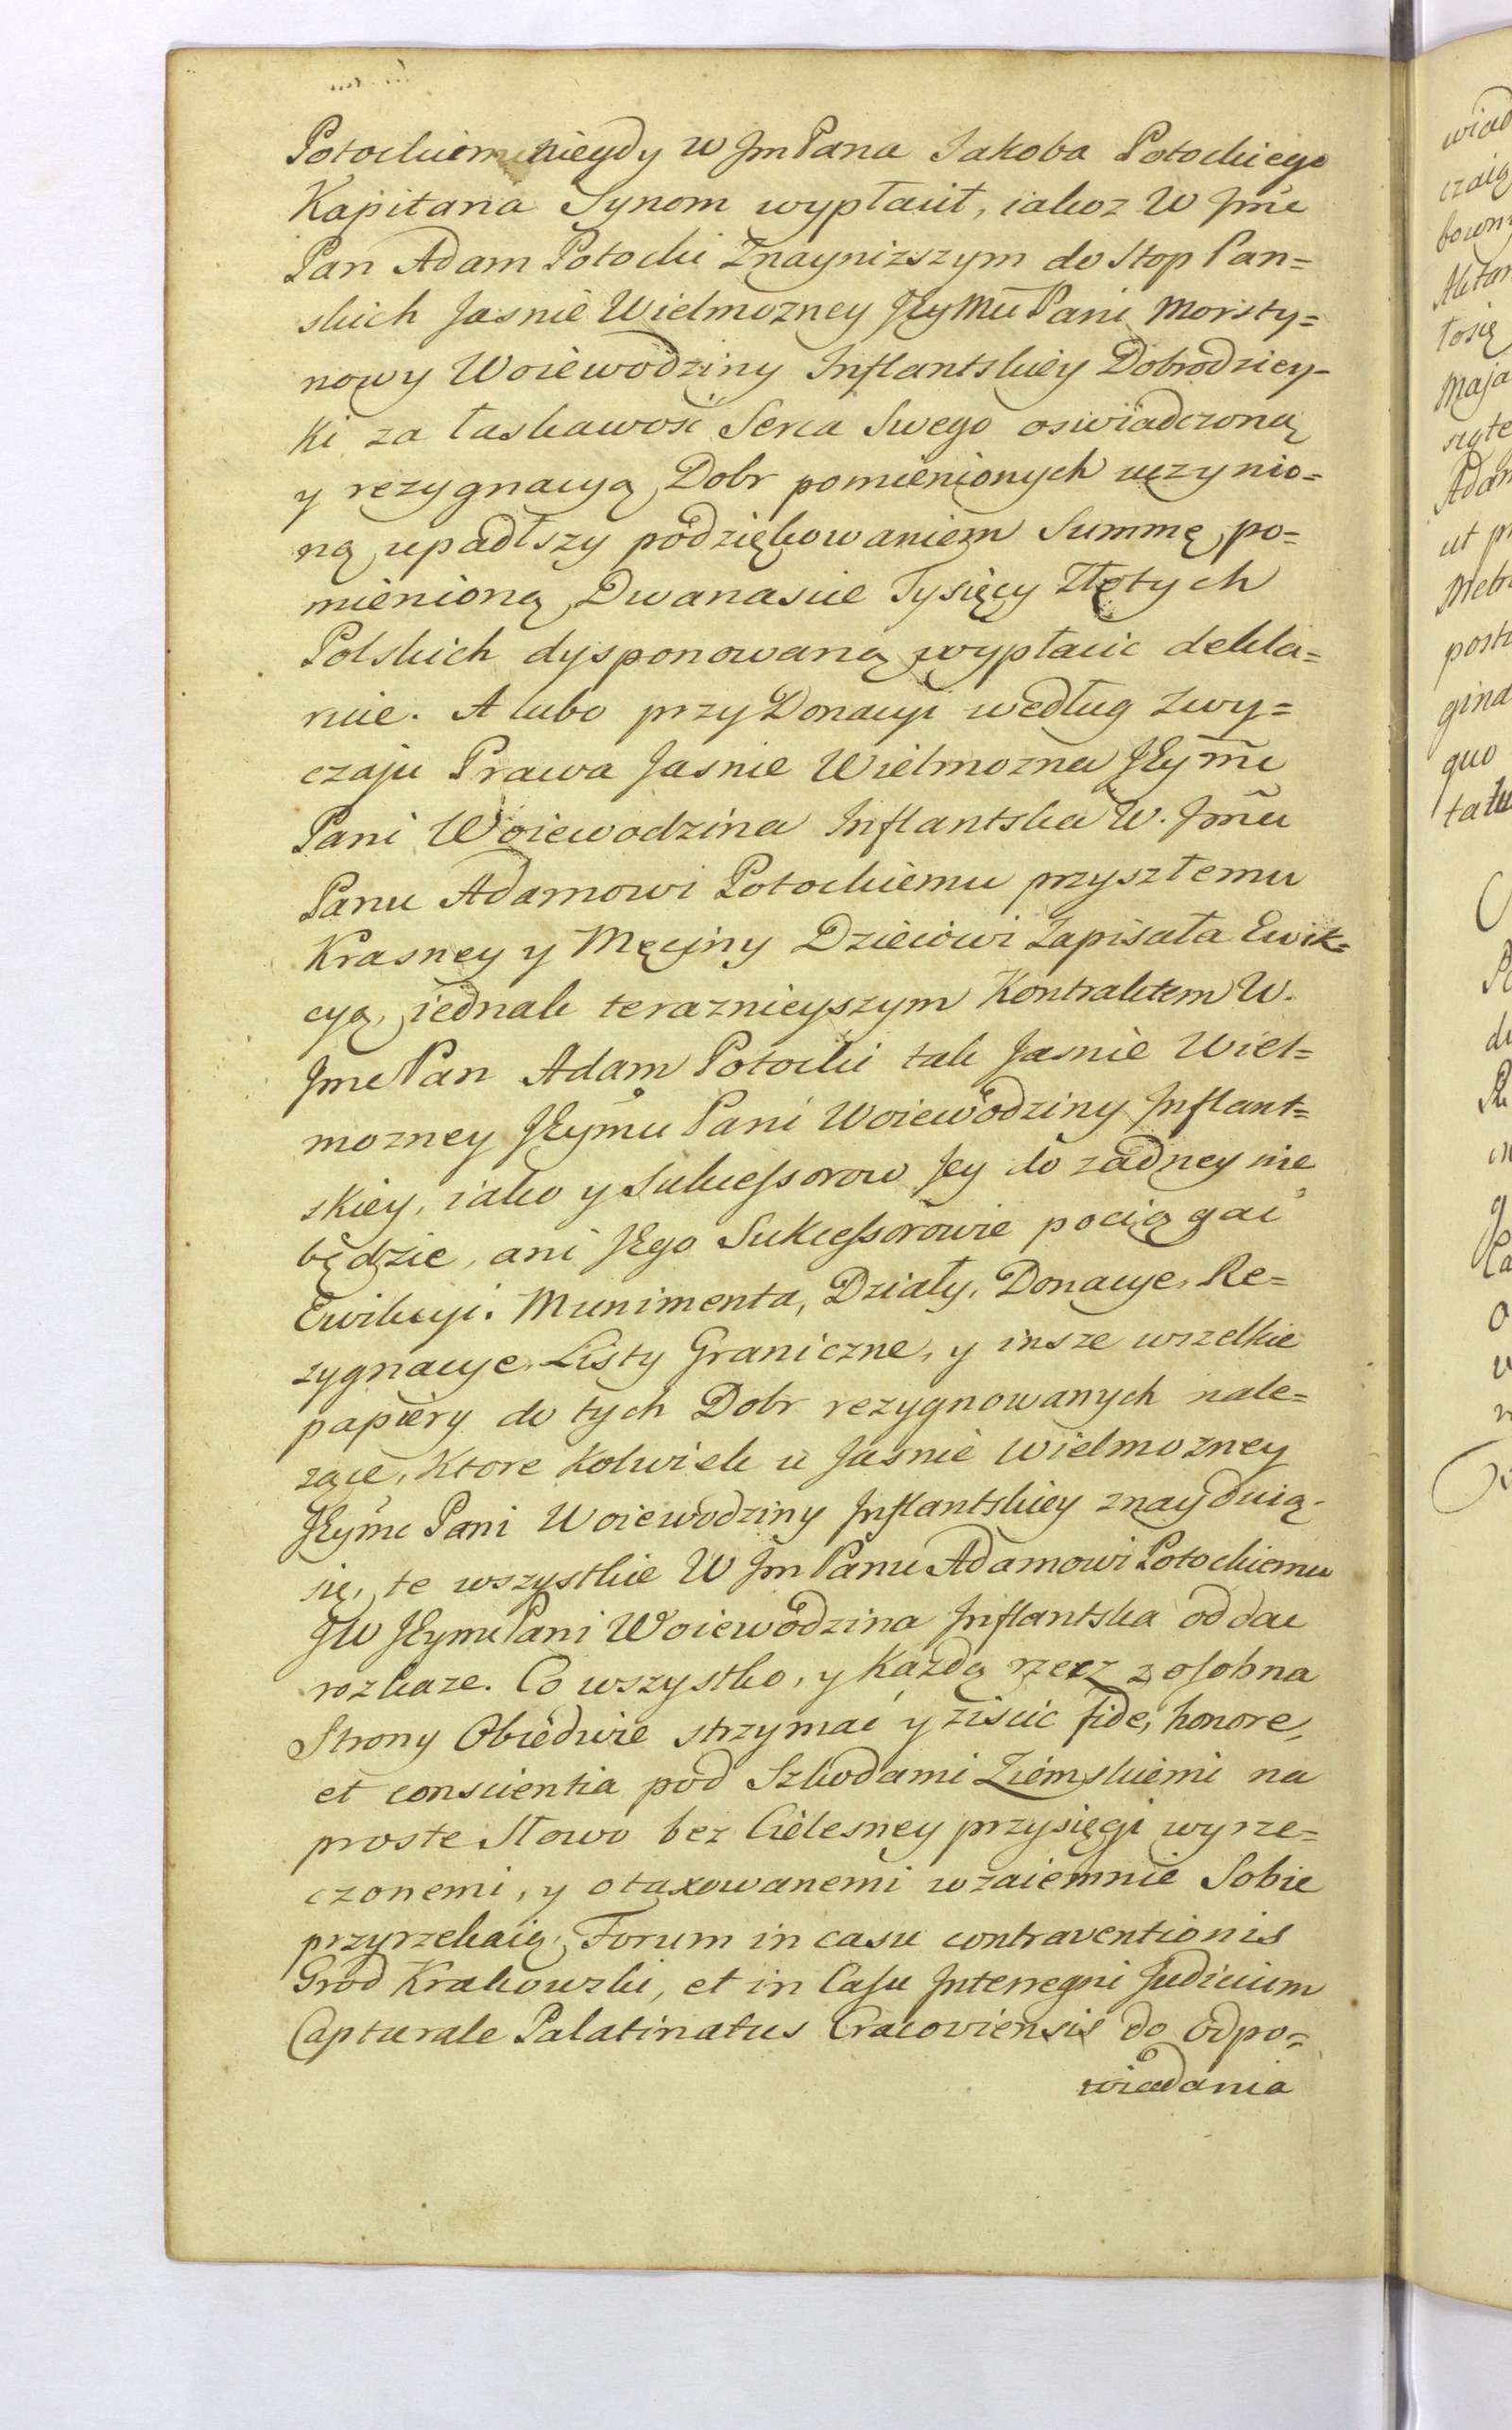 Potockiem niegdy W Jm Pana Jakoba Potockiego
Kapitana Synom wypłacił, iakoz W Jme
Pan Adam Potocki Znaynizszym do Stop Pan=
skich Jasnie Wielmozney JEyMci Pani Morszty=
nowy Woiewodziny Inflantskiey Dobrodziey-
ki za łaskawość Serca Swego oswiadczoną
y rezygnacyą Dobr pomienionych uczynio=
ną upadłszy podziękowaniem Summę po=
mienioną Dwanascie Tysięcy Złotych
Polskich dysponowaną wypłacic dekla=
ruie. A lubo przy Donacyi według Zwy=
czaju Prawa Jasnie Wielmozna JEyme
Pani Woiewodzina Inflantska W. Jmci
Panu Adamowi Potockiemu przyszłemu
Krasney y Męciny Dziecowi Zapisała Ewik=
cyą, iednak teraznieyszym Kontraktem W.
Jme Pan Adam Potocki tak Jasnie Wiel=
mozney JEymci Pani Woiewodziny Inflant=
skiey, iako y Sukcessorow Jey do zadney nie
będzie, ani JEgo Sukcessorowie pociągać
Ewikcyi. Munimenta, Działy, Donacye, Re=
zygnacye, Listy Graniczne, y insze wszelkie
papiery do tych Dobr rezygnowanych nale=
zące, Ktore Kolwiek u Jasnie Wielmozney
JEyme Pani Woiewodziny Inflantskiey znayduią
się, te wszystkie W Jm Panu Adamowi Potockiemu
JW JEyme Pani Woiewodzina Inflantska oddac
rozkaze. Co wszystko, y Każdą rzecz z osobna
Strony Obiedwie strzymać y ziscic fide, honore,
et conscientia pod Szkodami Ziemskiemi na
proste Słowo bez Cielesney przysięgi wyrze=
czonemi, y otaxowanemi wzaiemnie Sobie
przyrzekaią, Forum in casu contraventionis
Grod Krakowski, et in Casu Interregni Judicium
Capturale Palatinatus Cracoviensis do odpo=
wiadania